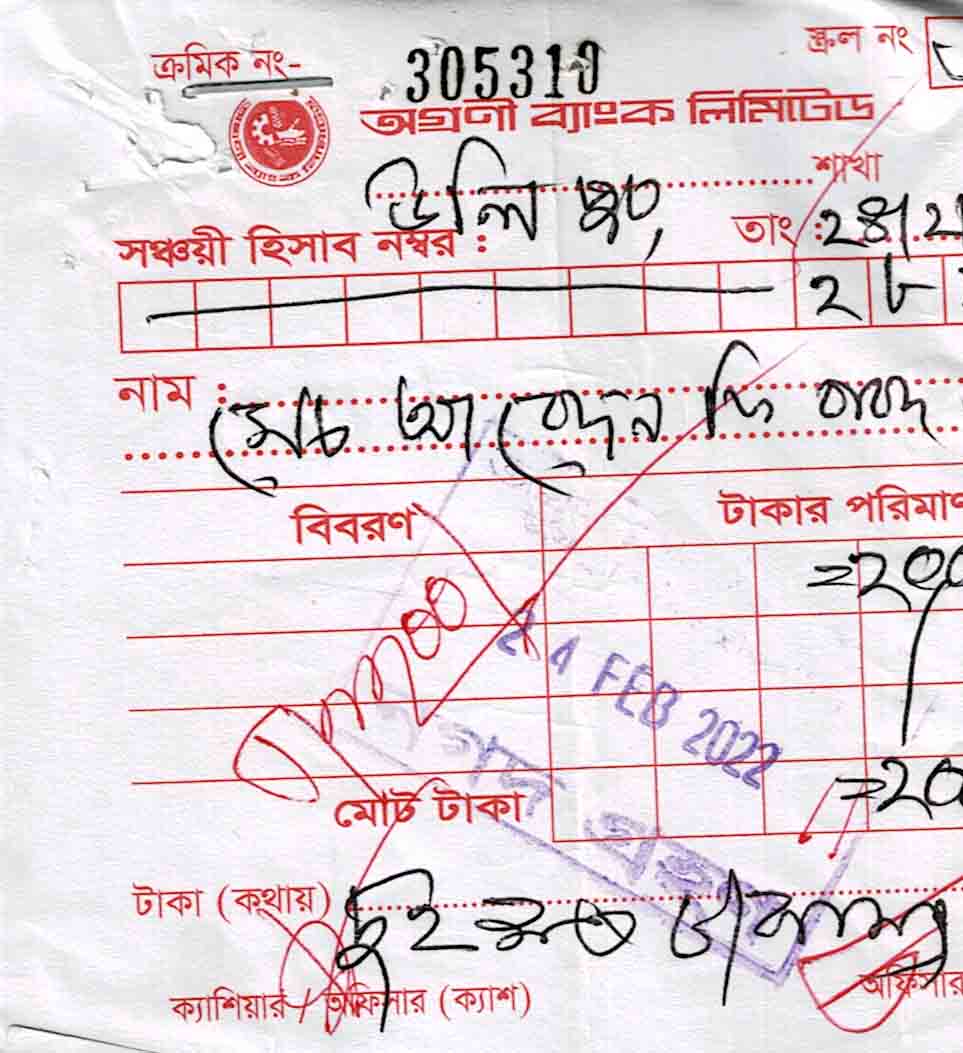 ক্রমিক নং- 305310 স্ক্রল নং
অগ্রণী ব্যাংক লিমিটেড
উলিপুর, শাখা
সঞ্চয়ী হিসাব নম্বর : তাং : ২৪/২
২৮
নাম : মোঃ আবেদন ফি বাবদ
বিবরণ টাকার পরিমাণ
=২০০
24 FEB 2022
নগদ গ্রহণ
মোট টাকা =২০
টাকা (কথায়) দুই শত টাকা মাত্র
ক্যাশিয়ার / অফিসার (ক্যাশ) অফিসার